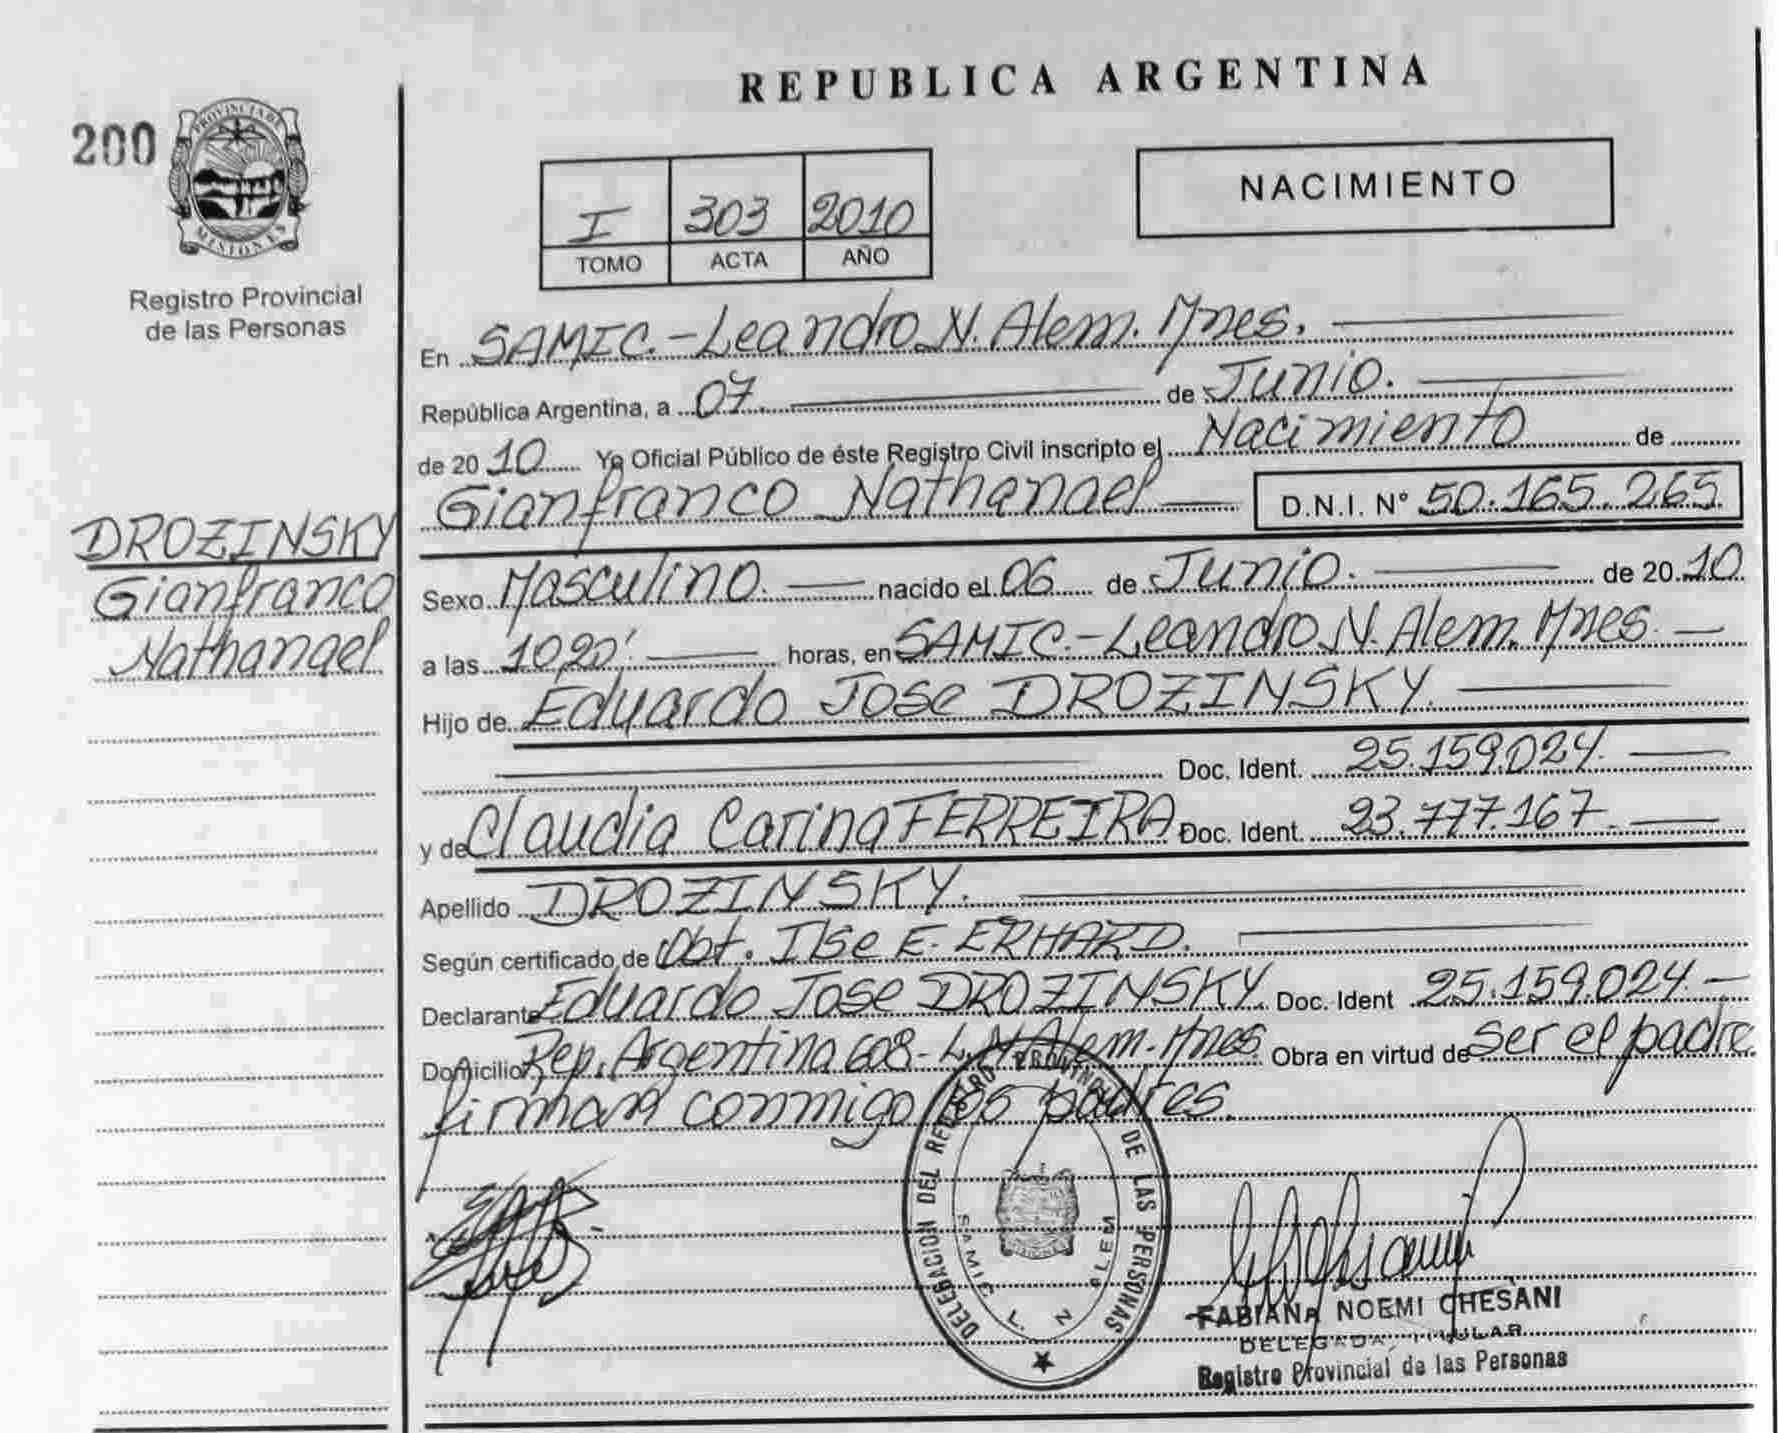 REPUBLICA ARGENTINA
200
PROVINCIA DE
MISIONES
Registro Provincial
de las Personas
I 303 2010
TOMO ACTA AÑO
NACIMIENTO
En SAMIC.-Leandro N. Alem. Mnes.
República Argentina, a 07. de Junio.
de 2010 Yo Oficial Público de éste Registro Civil inscripto el Nacimiento de
Gianfranco Nathanael D.N.I. Nº 50.165.265.
DROZINSKY
Gianfranco
Nathanael
Sexo Masculino. nacido el 06 de Junio. de 2010
a las 1020' horas, en SAMIC.-Leandro N. Alem. Mnes.
Hijo de Eduardo Jose DROZINSKY.
Doc. Ident. 25.159.024.
y de Claudia Carina FERREIRA Doc. Ident. 23.777.167.
Apellido DROZINSKY.
Según certificado de Obt. Ilse E. ERHARD.
Declarante Eduardo Jose DROZINSKY. Doc. Ident 25.159.024.
Domicilio Rep. Argentina 608-L.N.Alem-Mnes. Obra en virtud de ser el padre
firman conmigo los padres.
DELEGACION DEL REGISTRO PROVINCIAL DE LAS PERSONAS
SAMIC L. N. ALEM
MISIONES
FABIANA NOEMI CHESANI
DELEGADA TITULAR
Registro Provincial de las Personas